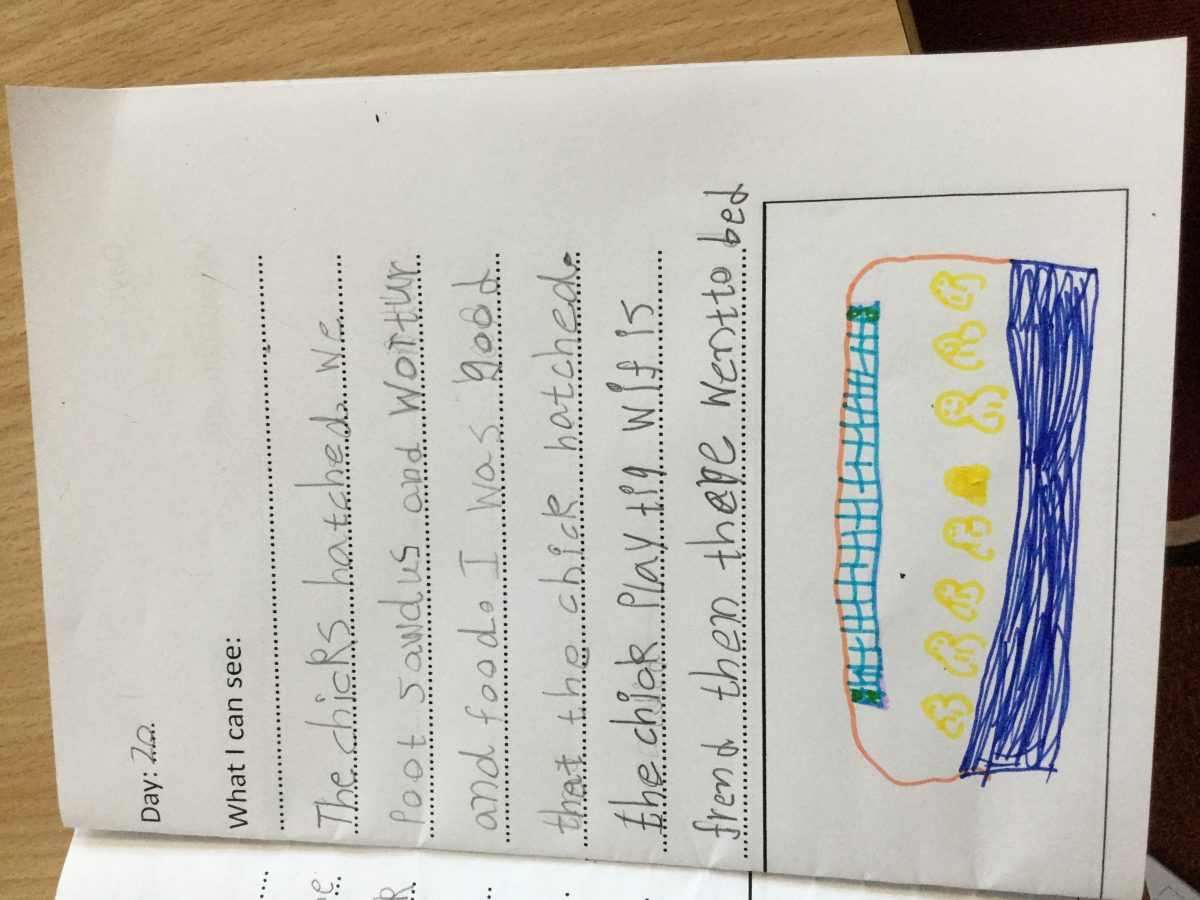 Day: 20
What I can see:
The chicks hatched. We
Poot sawdus and wortur
and food. I was good
that the chick hatched.
the chick Play tig wif is
frend then thaye went to bed